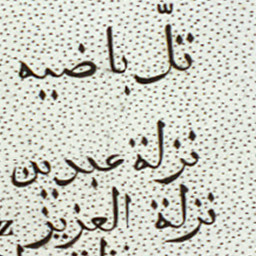 تلّ باضيه
نزلة عبدين
نزلة العزيز